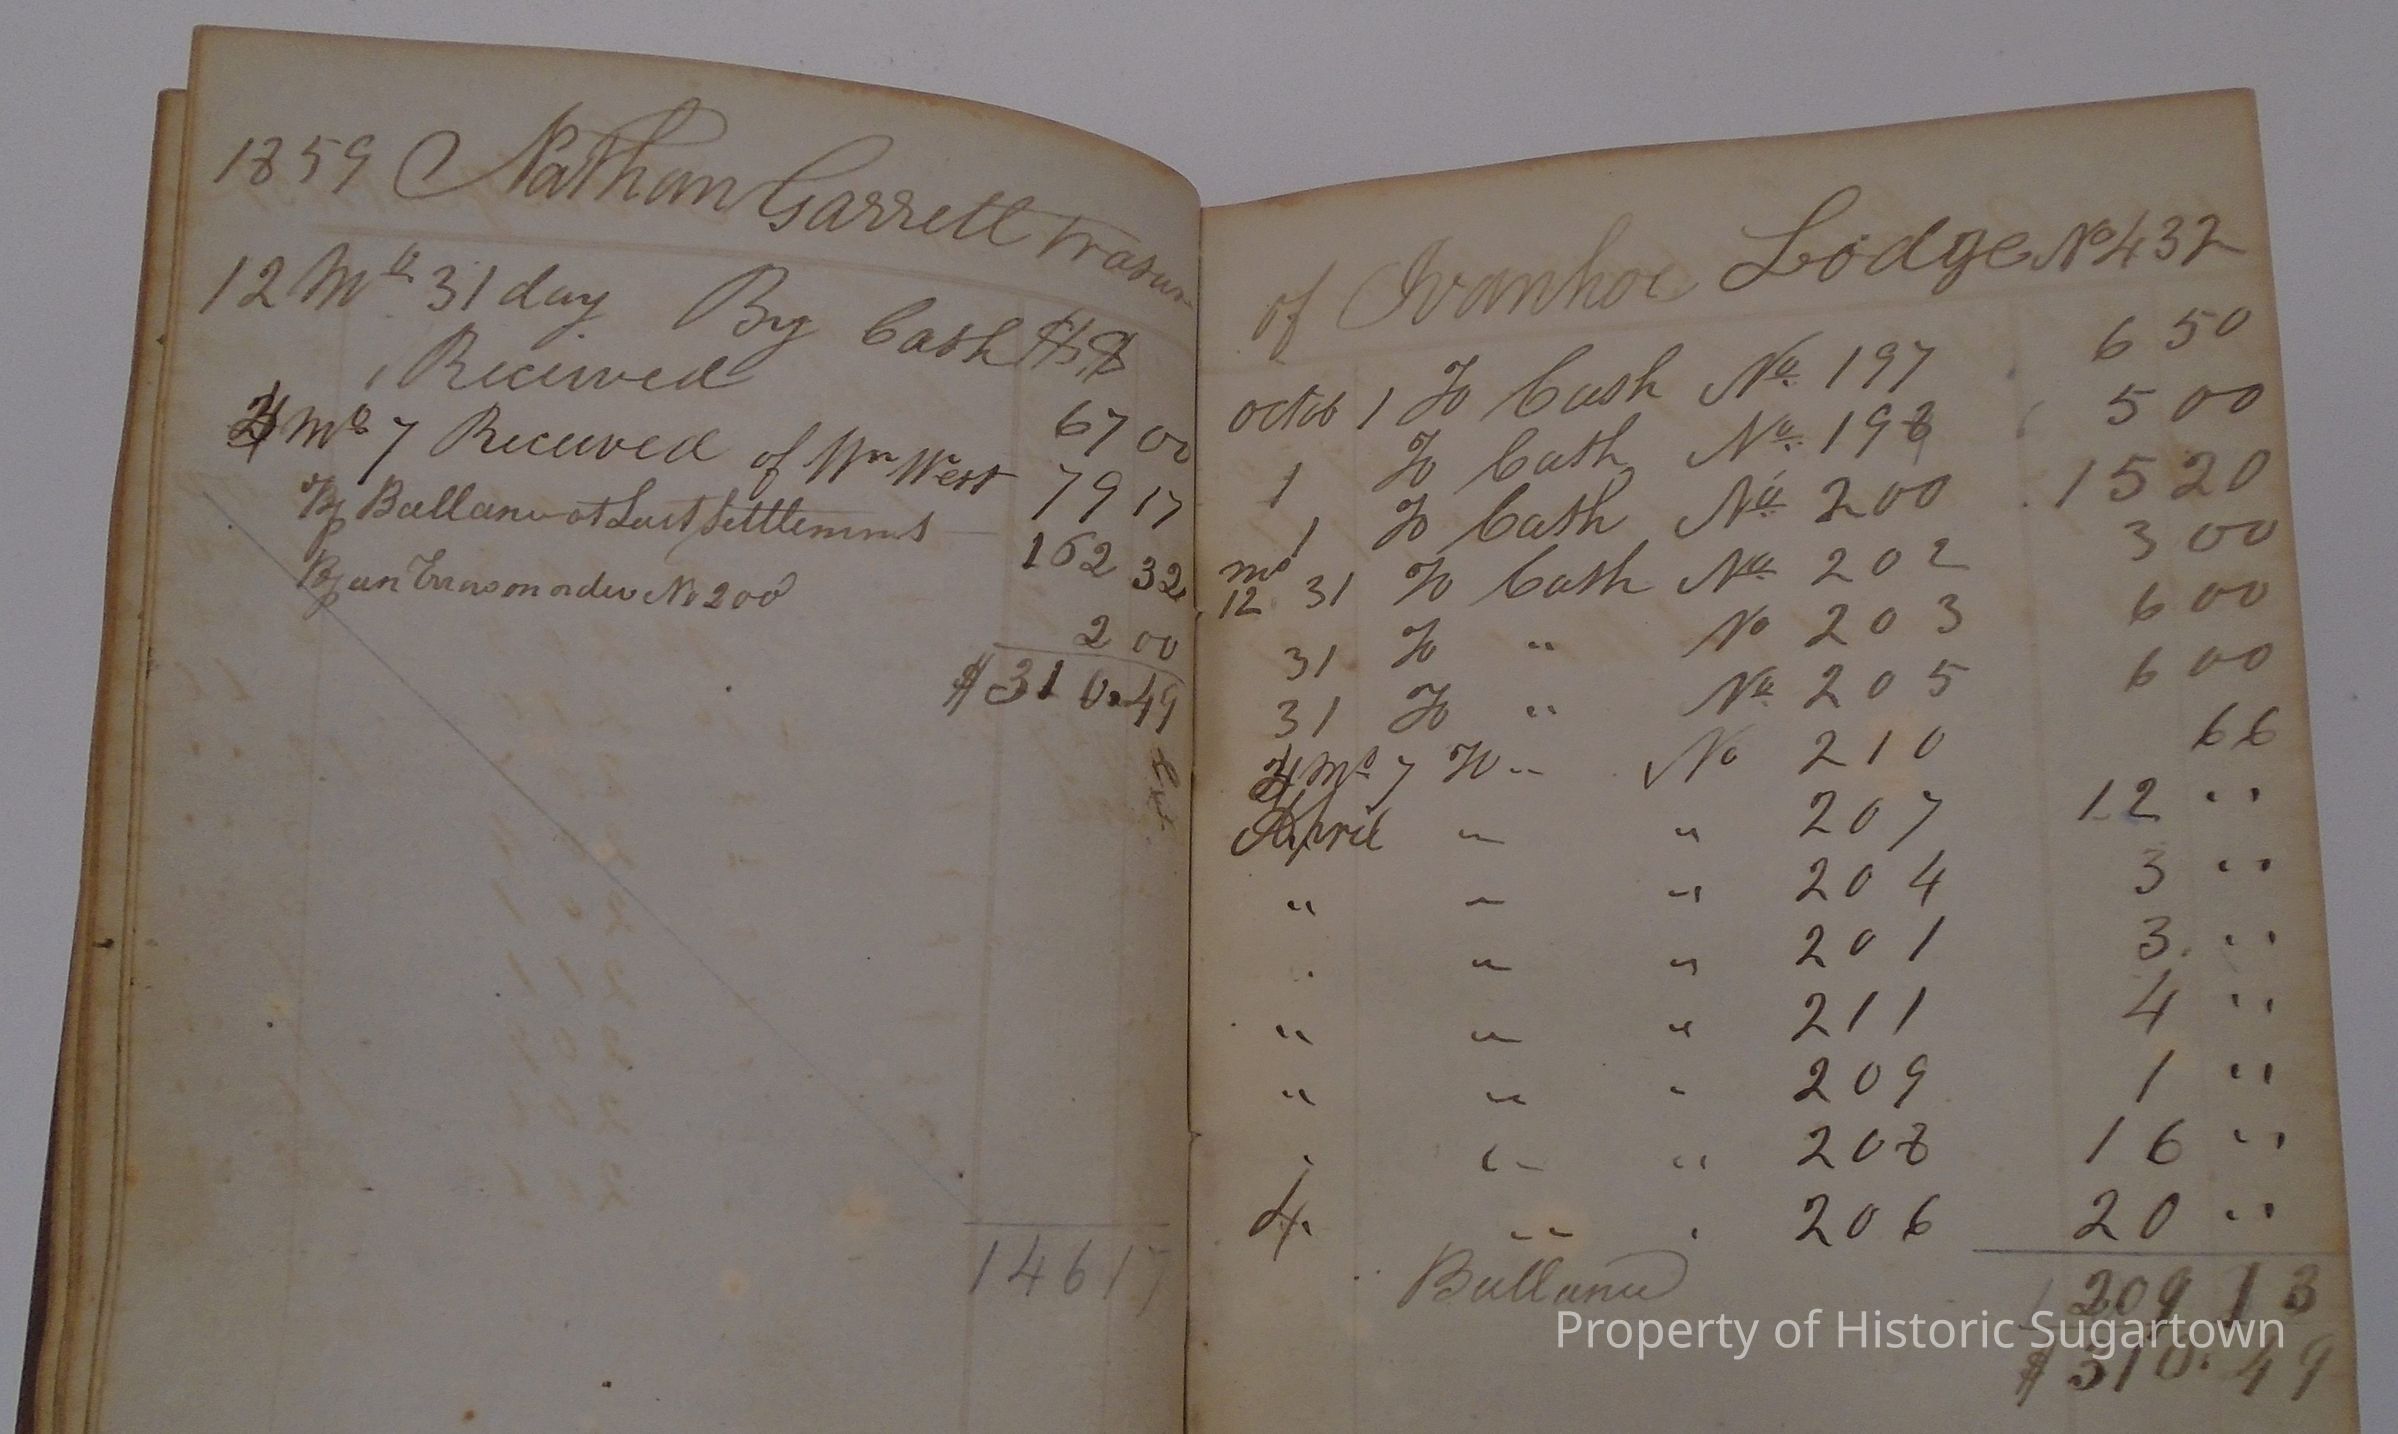 1859 Nathan Garrett Trasur
12 Mo 31 day By Cash $ $
Recieived 67 00
4 Mo 7 Receeved of Wm West 79 17
By Ballance at Last Settlement 162 32
By an Error on order No 200
2 00
$ 310.49
146 17
of Ivanhoe Lodge No 432
octob 1 To Cash No. 197 6 50
1 To Cash No. 198 5 00
1 To Cash No. 200 15 20
mo 12 31 To Cash No. 202 3 00
31 To " No 203 6 00
31 To " No. 205 6 00
4 Mo 7 To " No 210 66
April " " 207 12 "
" " " 204 3 "
" " 201 3 "
" " " 211 4 "
" " " 209 1 "
" " 208 16 "
4 " 206 20 "
Ballance 209 13
$ 310.49
Property of Historic Sugartown